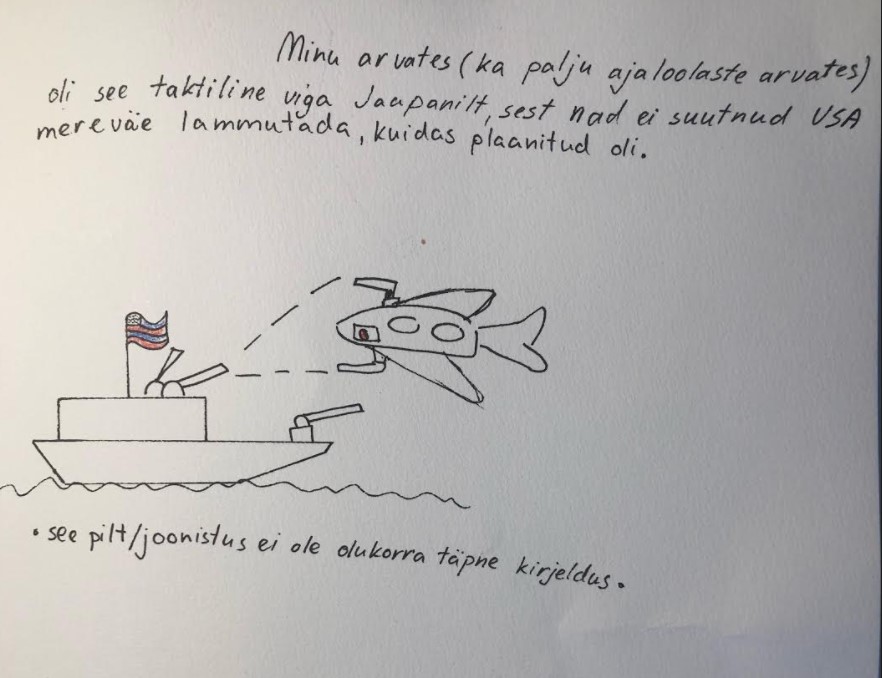 Minu arvates (ka palju ajaloolaste arvates)
oli see taktiline viga Jaapanilt, sest nad ei suutnud USA
mereväe lammutada, kuidas plaanitud oli.
• see pilt/joonistus ei ole olukorra täpne kirjeldus.